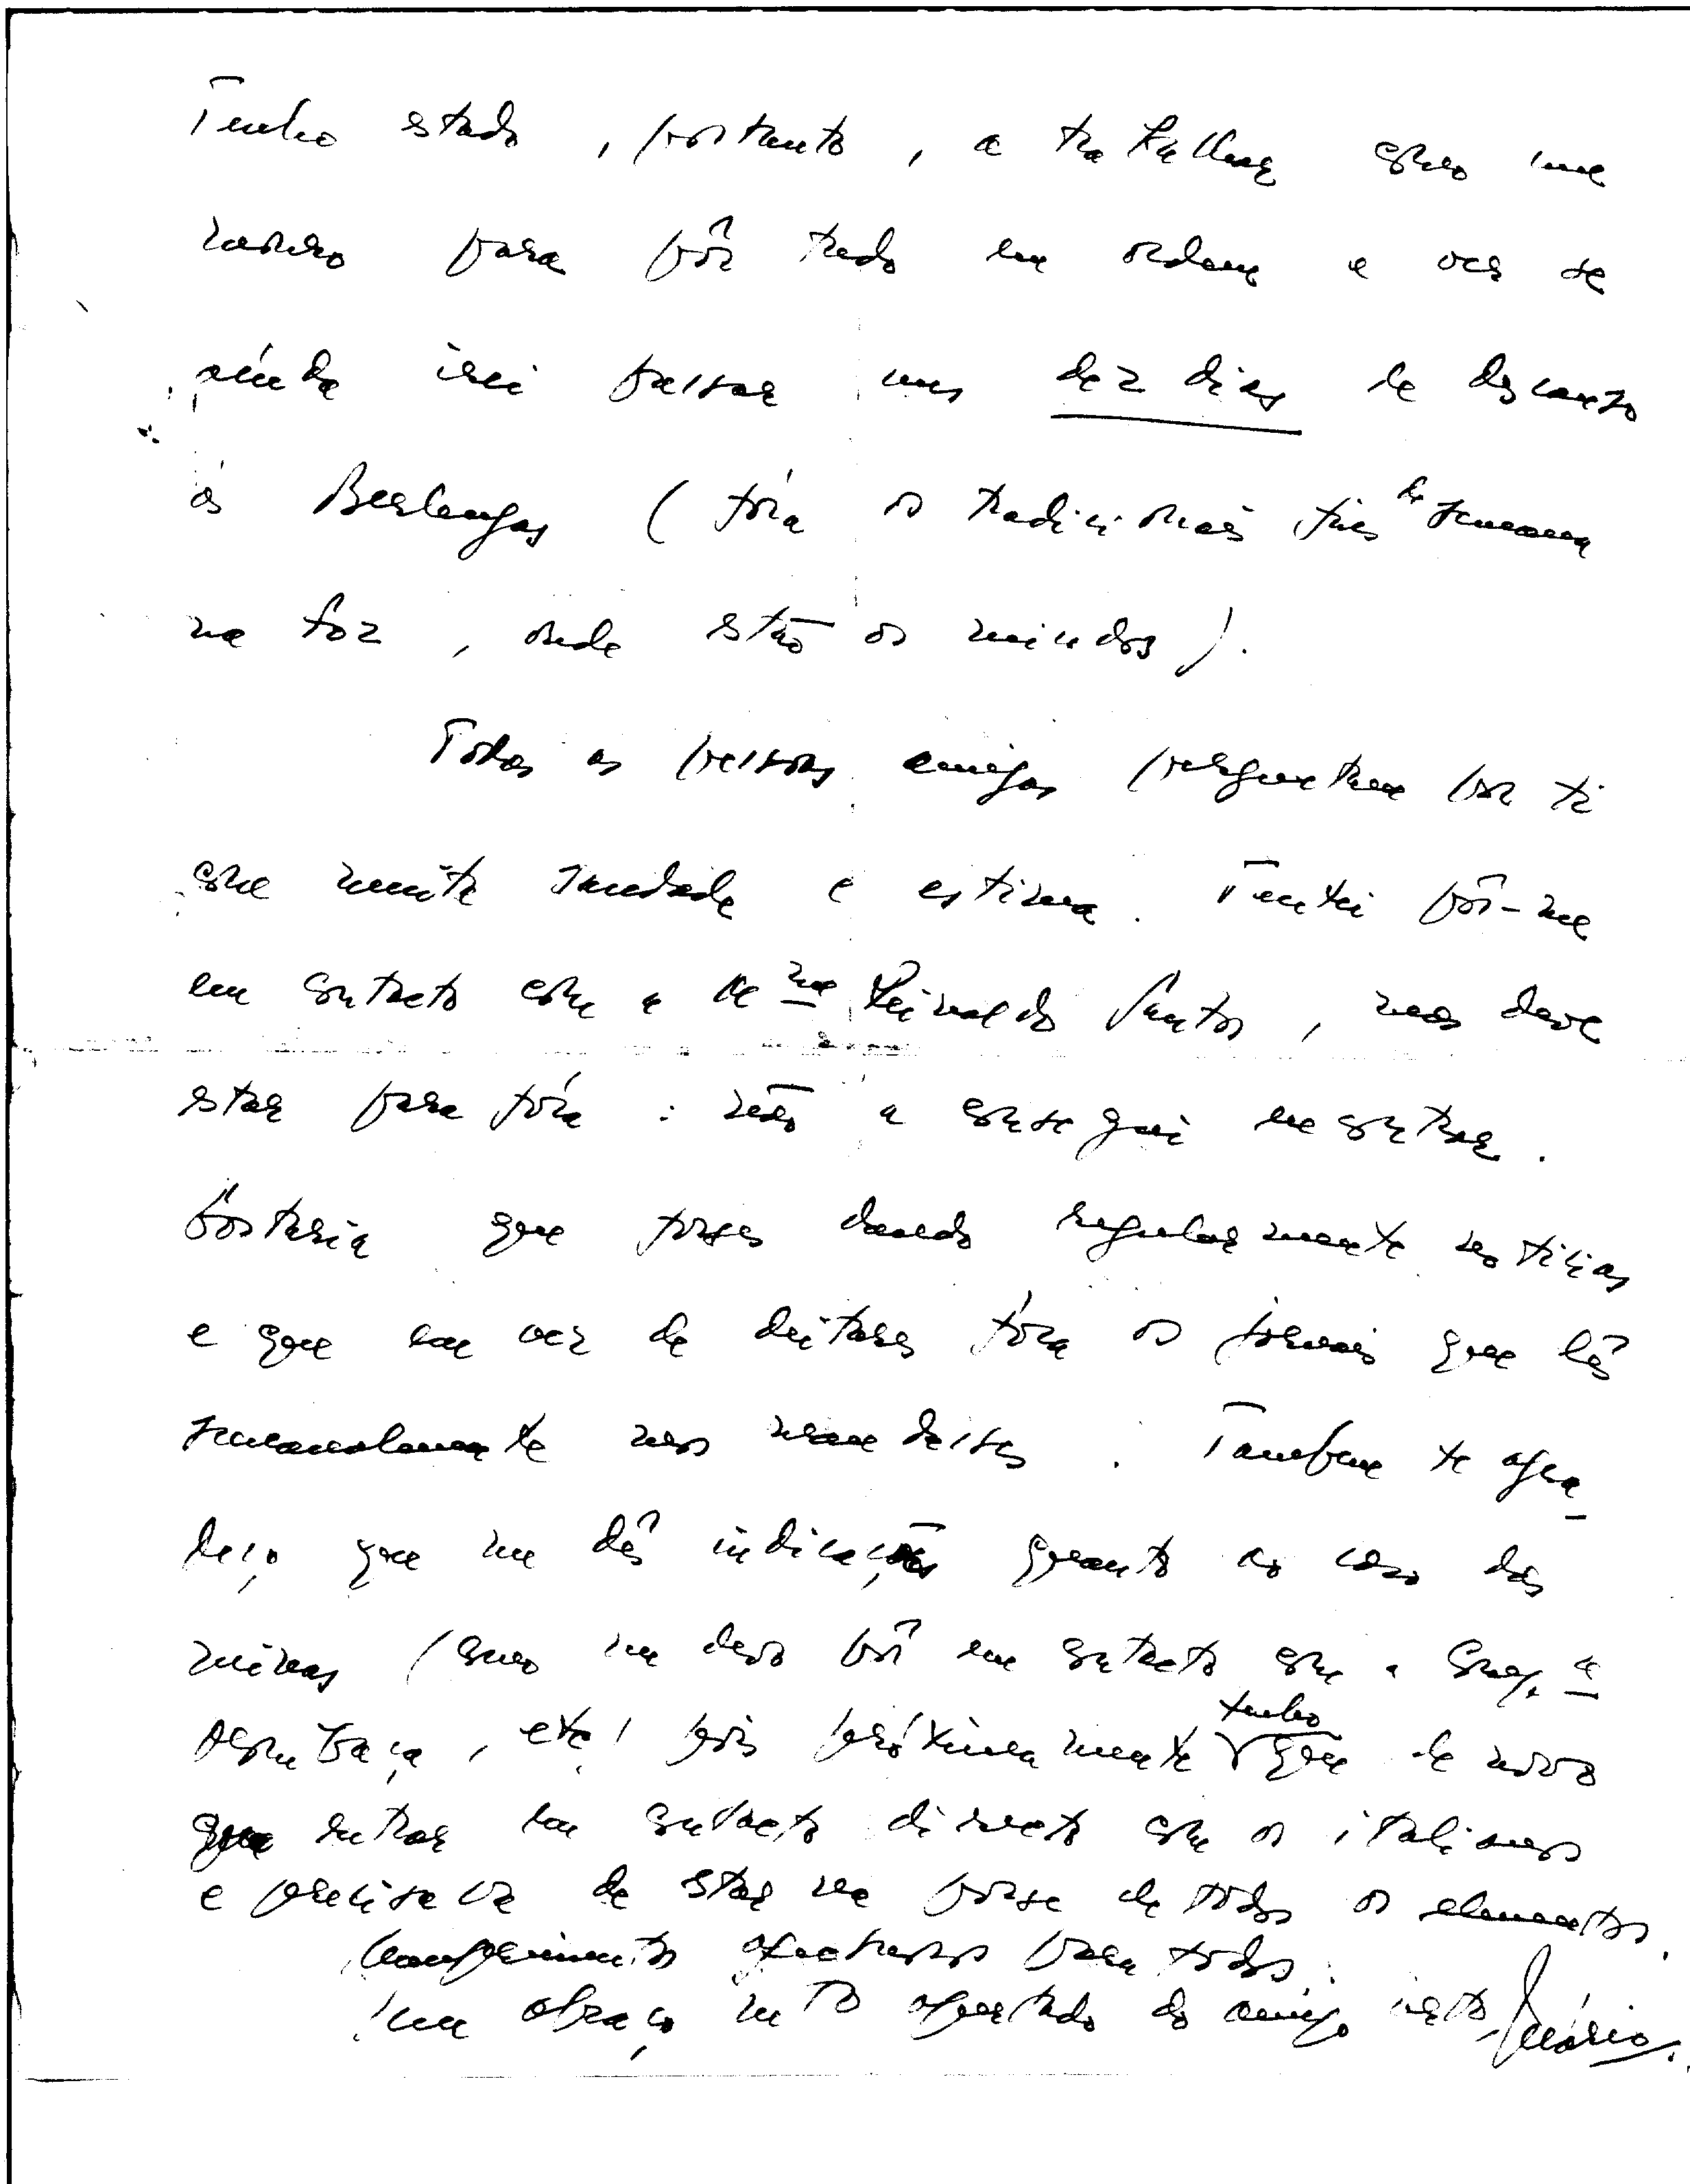 Tenho estado, portanto, a trabalhar como um
mouro para pôr tudo em ordem a ver se
ainda irei passar uns dez dias de descanso
ás Berlengas (fóra os tradicionais fins de semana
na Foz, onde estão os miudos).
Todas as pessoas amigas perguntam por ti
com muita saudade e estima. Tentei pôr-me
em contacto com a Mme Reinaldo Santos, mas deve
estar para fóra: não a consegui encontrar.
Gostaria que fosses dando regularmente noticias
e que em vez de deitares fóra os jornais que lês
semanalmente nos mandasses. Tambem te agra-
deço que me dês indicações quanto ao caso das
minas (como me devo pôr em contacto com a Comp.a
, etc) pois próximamente tenho que de novo
que entrar em contacto directo com os italianos
e precisava de estar na posse de todos os elementos.
Cumprimentos afectuosos para todos.
Um abraço mto apertado do amigo certo, Mário.